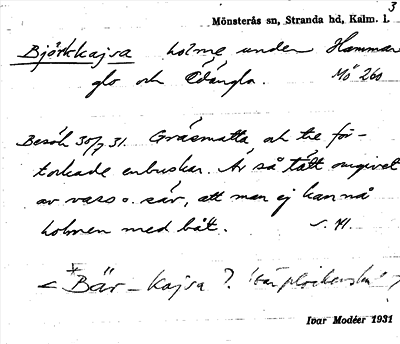 3
Mönsterås sn, Stranda hd, Kalm. l.
Björkkajsa holme under Hammar
glo och Ödängla. Mö 260
Besök 30/7 31. Gräsmatta och tre för-
torkade enbuskar. Är så tätt omgivet
av vass o. säv, att man ej kan nå
holmen med båt.
< *Bär-kajsa ?
Ivar Modéer 1931